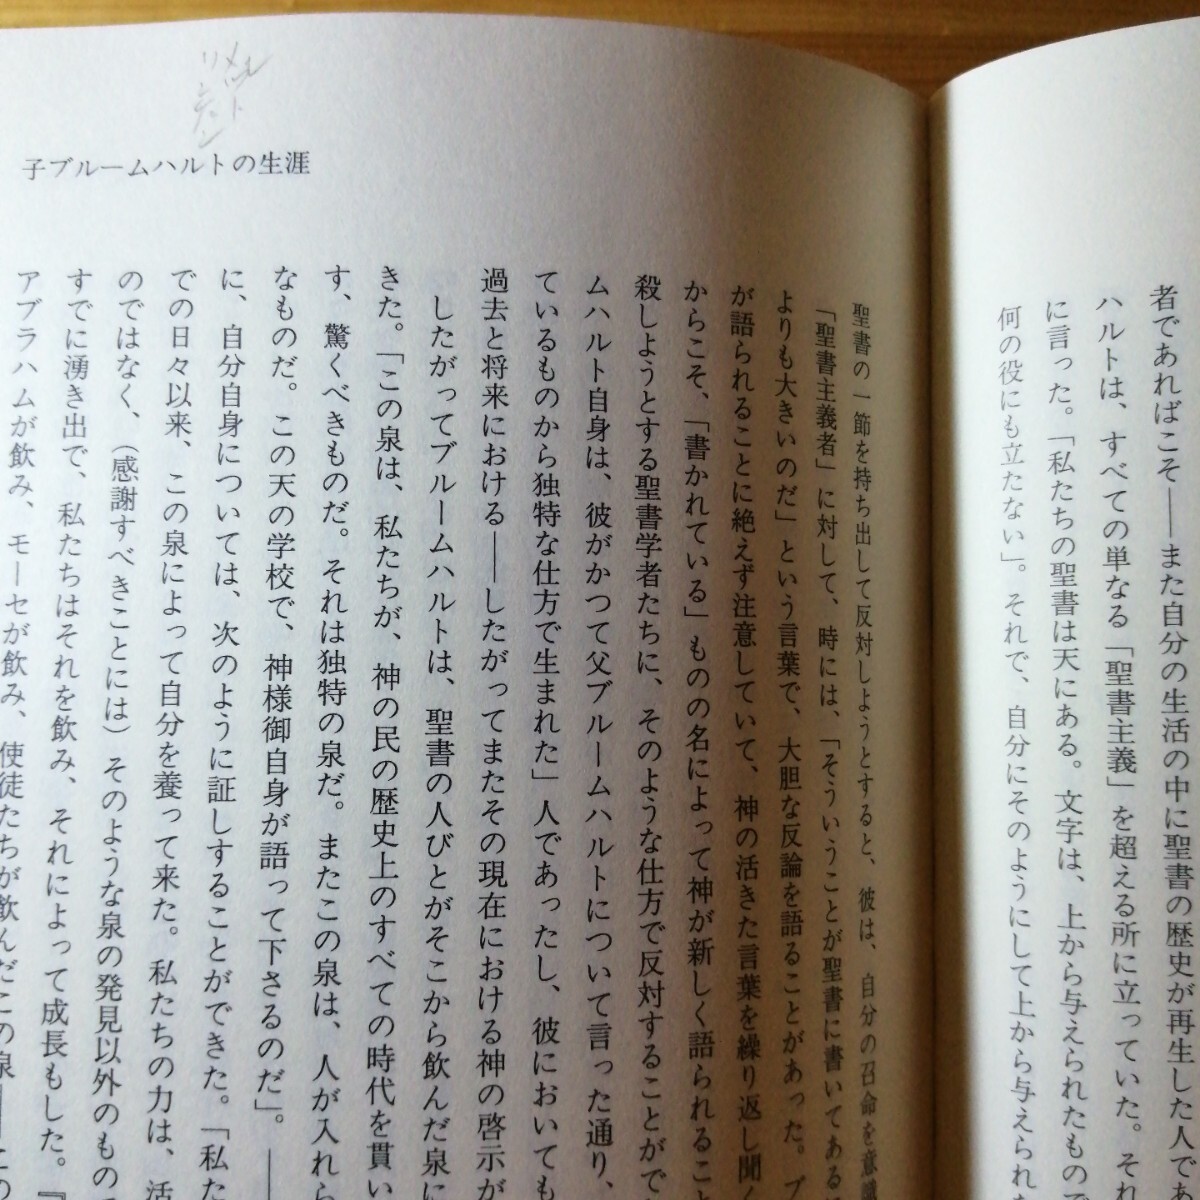 者であればこそ――また自分の生活の中に聖書の歴史が再生した人であ
ハルトは、すべての単なる「聖書主義」を超える所に立っていた。それ
に言った。「私たちの聖書は天にある。文字は、上から与えられたもので
何の役にも立たない」。それで、自分にそのようにして上から与えられ
子ブルームハルトの生涯
聖書の一節を持ち出して反対しようとすると、彼は、自分の召命を意識
「聖書主義者」に対して、時には、「そういうことが聖書に書いてある
よりも大きいのだ」という言葉で、大胆な反論を語ることがあった。ブ
が語られることに絶えず注意していて、神の活きた言葉を繰り返し聞く
からこそ、「書かれている」ものの名によって神が新しく語られること
殺しようとする聖書学者たちに、そのような仕方で反対することがで
ムハルト自身は、彼がかつて父ブルームハルトについて言った通り、
ているものから独特な仕方で生まれた」人であったし、彼においても
過去と将来における――したがってまたその現在における神の啓示が
したがってブルームハルトは、聖書の人びとがそこから飲んだ泉に
きた。「この泉は、私たちが、神の民の歴史上のすべての時代を貫い
す、驚くべきものだ。それは独特の泉だ。またこの泉は、人が入れら
なものだ。この天の学校で、神様御自身が語って下さるのだ」。――
に、自分自身については、次のように証しすることができた。「私た
での日々以来、この泉によって自分を養って来た。私たちの力は、活
のではなく、（感謝すべきことには）そのような泉の発見以外のもので
すでに湧き出で、私たちはそれを飲み、それによって成長もした。『
アブラハムが飲み、モーセが飲み、使徒たちが飲んだこの泉――この